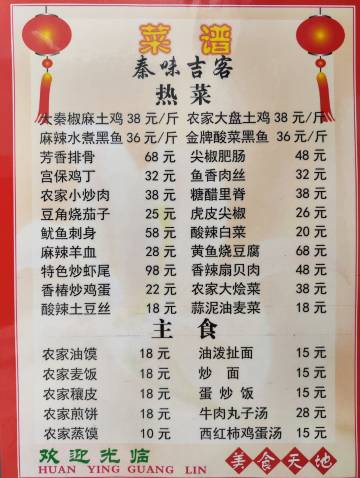 菜谱
秦味吉客
热菜
大秦椒麻土鸡 38 元/斤 农家大盘土鸡 38 元/斤
麻辣水煮黑鱼 36 元/斤 金牌酸菜黑鱼 36 元/斤
芳香排骨 68 元 尖椒肥肠 48 元
宫保鸡丁 32 元 鱼香肉丝 32 元
农家小炒肉 38 元 糖醋里脊 38 元
豆角烧茄子 25 元 虎皮尖椒 26 元
鱿鱼刺身 58 元 酸辣白菜 20 元
麻辣羊血 28 元 黄鱼烧豆腐 68 元
特色炒虾尾 98 元 香辣扇贝肉 48 元
香椿炒鸡蛋 22 元 农家大烩菜 38 元
酸辣土豆丝 18 元 蒜泥油麦菜 18 元
主食
农家油馍 18 元 油泼扯面 15 元
农家麦饭 18 元 炒面 15 元
农家穰皮 18 元 蛋炒饭 15 元
农家煎饼 18 元 牛肉丸子汤 28 元
农家蒸馍 10 元 西红柿鸡蛋汤 15 元
欢迎光临 美食天地
HUAN YING GUANG LIN